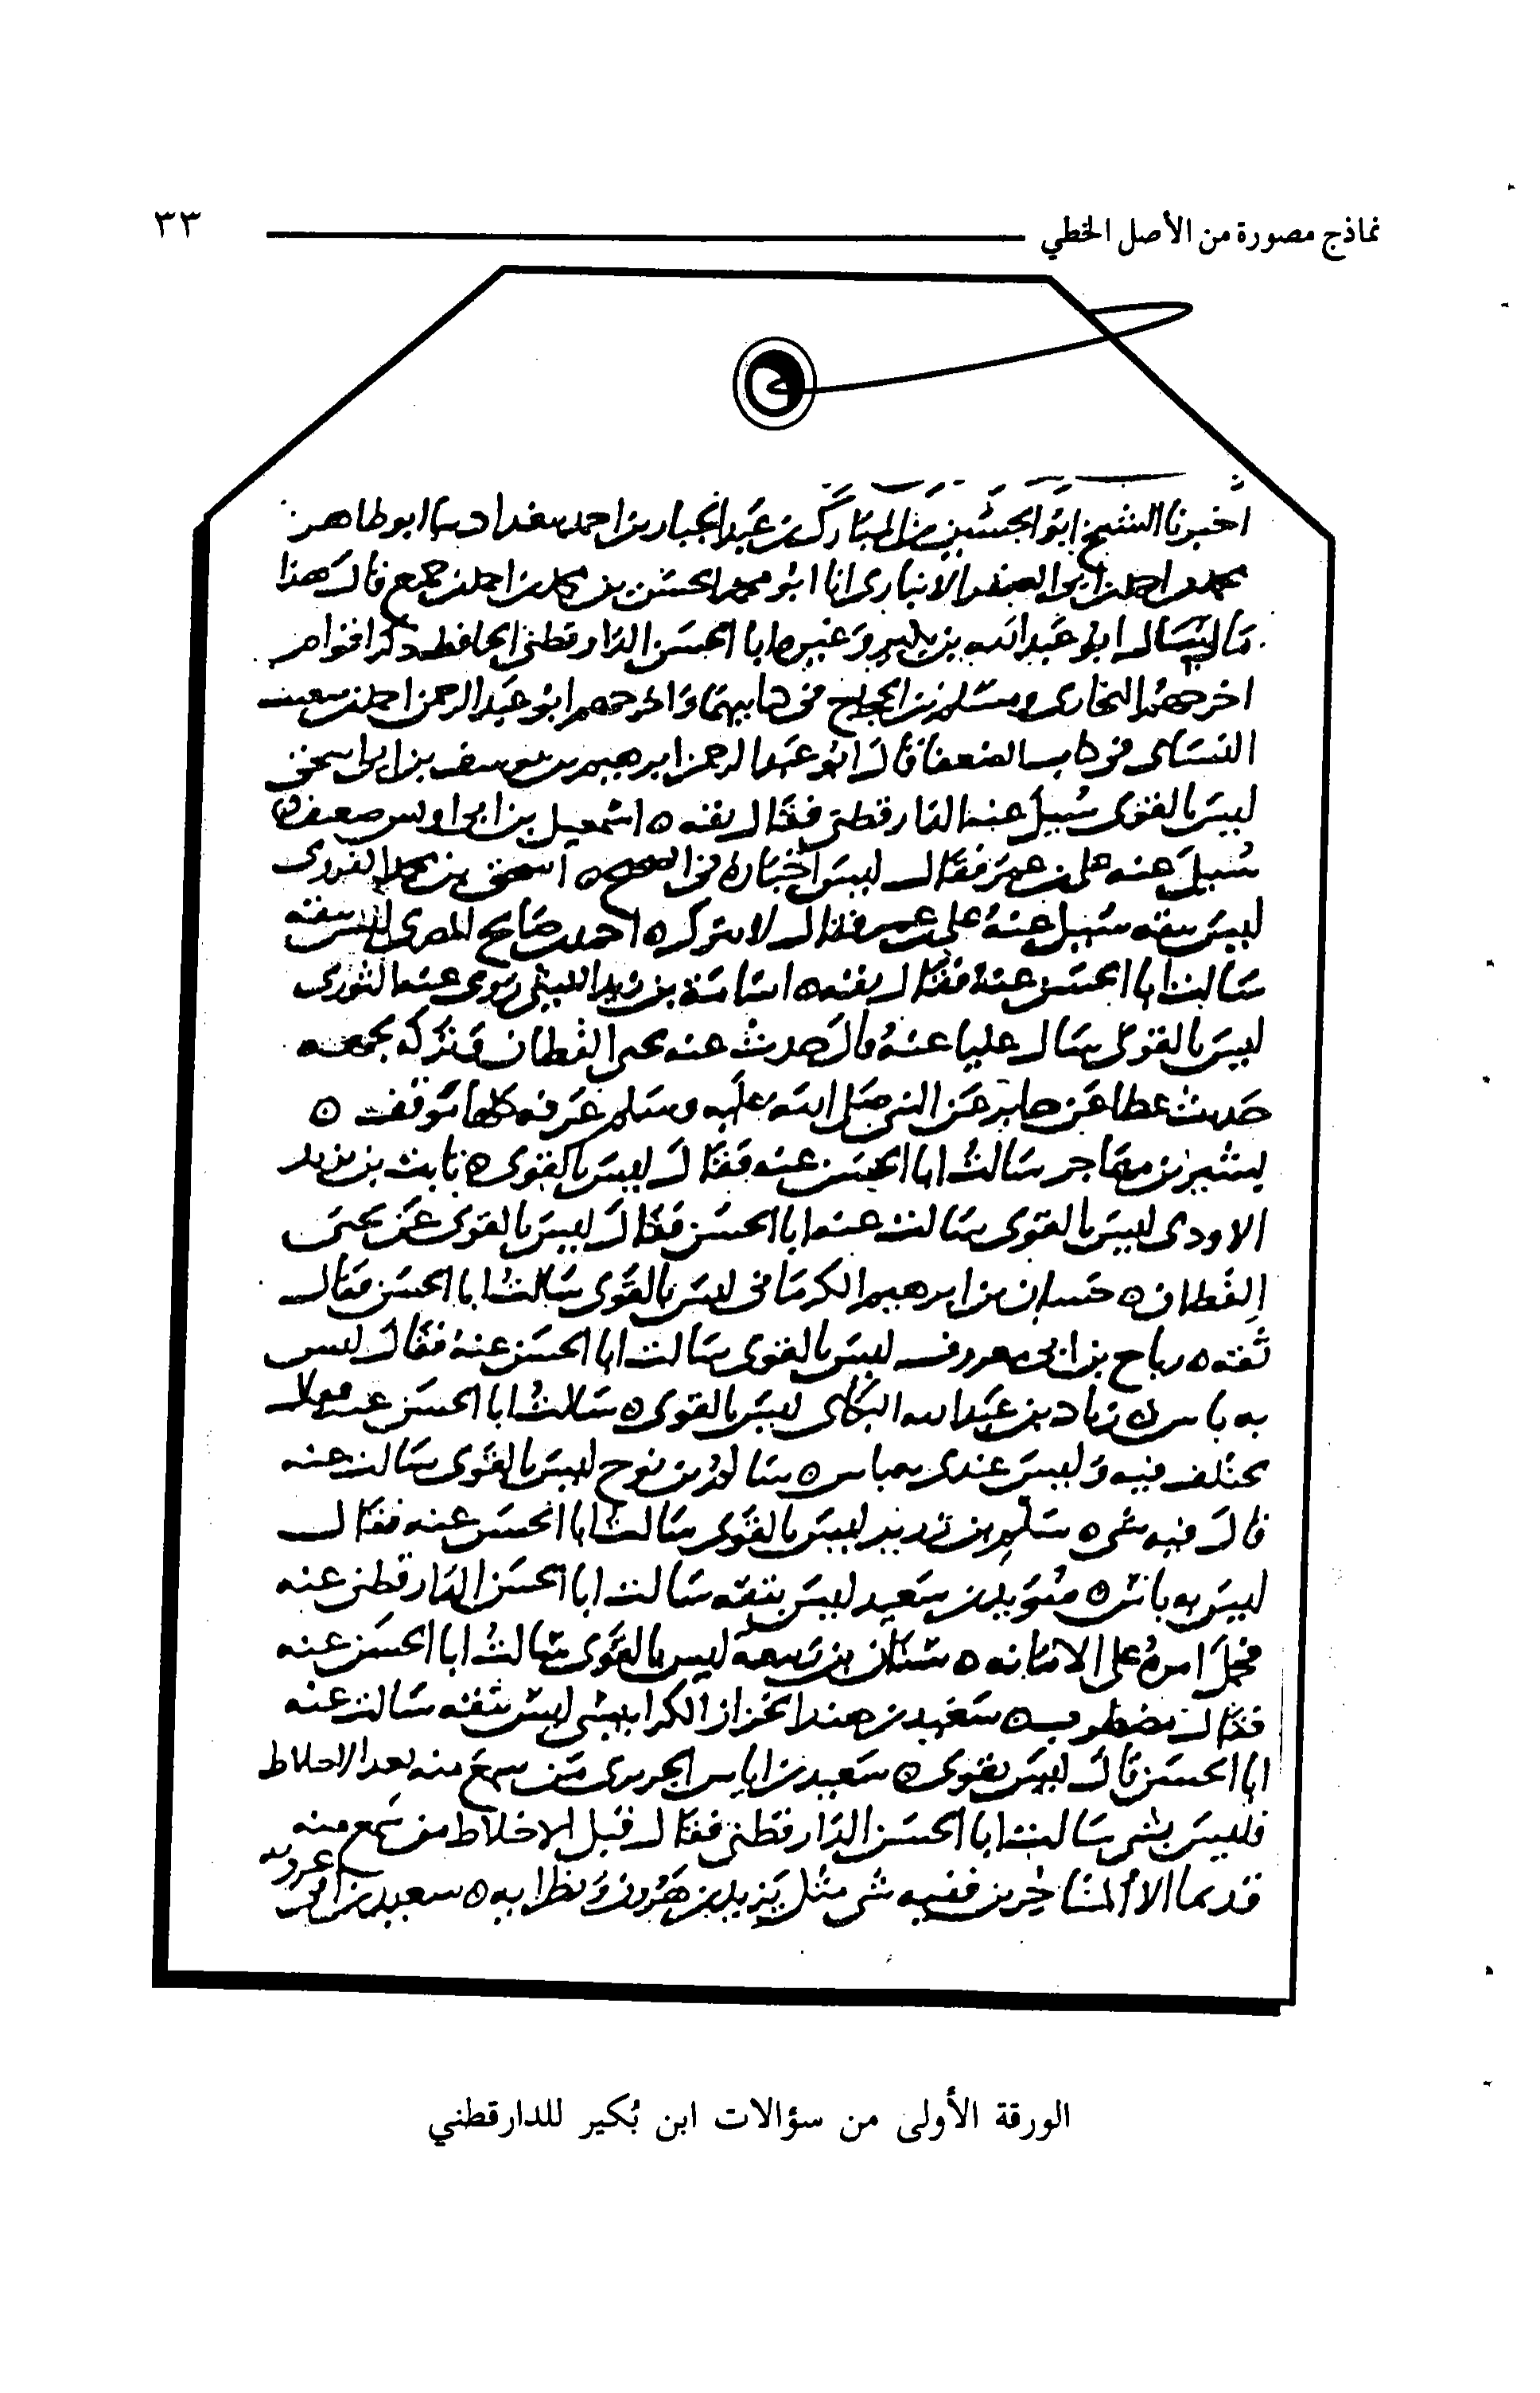 نماذج مصورة من الأصل الخطي ٣٣
اخبرنا الشيخ ابو الحسين المبارك بن عبد الجبار بن احمد ببغداد ابو طاهر
محمد بن احمد بن ابي الصقر الانباري انا ابو محمد الحسن بن محمد بن احمد بن جميع قال هذا
ما سال ابو عبد الله بن بكير وغيره ابا الحسن الدارقطني الحافظ ذكر اقوام
اخرجهم البخاري ومسلم بن الحجاج في كتابيهما واخرجهم ابو عبد الرحمن احمد بن شعيب
النسائي في كتاب الضعفا قال ابو عبد الرحمن ابرهيم بن يوسف بن ابي اسحق
ليس بالقوي سيل عنه الدارقطني فقال ثقه ه اسمعيل بن ابي اويس ضعيف ه
سيل عنه علي بن عمر فقال ليس اختاره في الصحيح ه اسحق بن محمد الفروي
ليس بثقه سيل عنه علي بن عمر فقال لا يترك ه احمد بن صالح المصري ليس بثقه
سالت ابا الحسن عنه فقال ثقه ه اسامة بن زيد الليثي روى عنه الثوري
ليس بالقوي سال عليا عنه قال حدث عنه يحيى القطان فتركه بجمعه
حديث عطا عن جابر عن النبي صلى الله عليه وسلم عرفه كلها موقف ه
بشير بن مهاجر سالت ابا الحسن عنه فقال ليس بالقوي ه ثابت بن يزيد
الاودي ليس بالقوي سالت عنه ابا الحسن فقال ليس بالقوي عن يحيى
القطان ه حسان بن ابرهيم الكرماني ليس بالقوي سالت ابا الحسن فقال
ثقه ه رباح بن ابي معروف ليس بالقوي سالت ابا الحسن عنه فقال ليس
به باس ه زياد بن عبد الله البكاي ليس بالقوي ه سالت ابا الحسن عنه فقال
يختلف فيه وليس عندي به باس ه سالم بن نوح ليس بالقوي سالت عنه
قال فيه شي ه سلم بن زرير ليس بالقوي سالت ابا الحسن عنه فقال
ليس به باس ه سويد بن سعيد ليس بثقه سالت ابا الحسن الدارقطني عنه
فحمل امره على الامانه ه سنان بن ربيعه ليس بالقوي سالت ابا الحسن عنه
فقال مضطرب ه سعيد بن هند الخزاز الكرابيسي ليس بثقه سالت عنه
ابا الحسن قال ليس بقوي ه سعيد بن اياس الجريري من سمع منه بعد الاختلاط
فليس بشي سالت ابا الحسن الدارقطني فقال قبل الاختلاط من سمع منه
قديما الا المتاخرين ففيه شي مثل يزيد بن هرون ونظرايه ه سعيد بن ابي عروبه
الورقة الأولى من سؤالات ابن بُكير للدارقطني